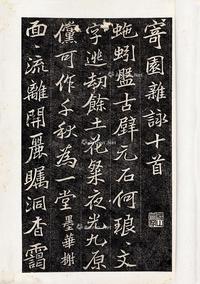 寄園雜詠十首
蜿蚓盤古壁元石何琅〻文
字逃劫餘土花粲夜光九原
儻可作千秋為一堂 墨華榭
面〻流離開麗矚洞杳靄